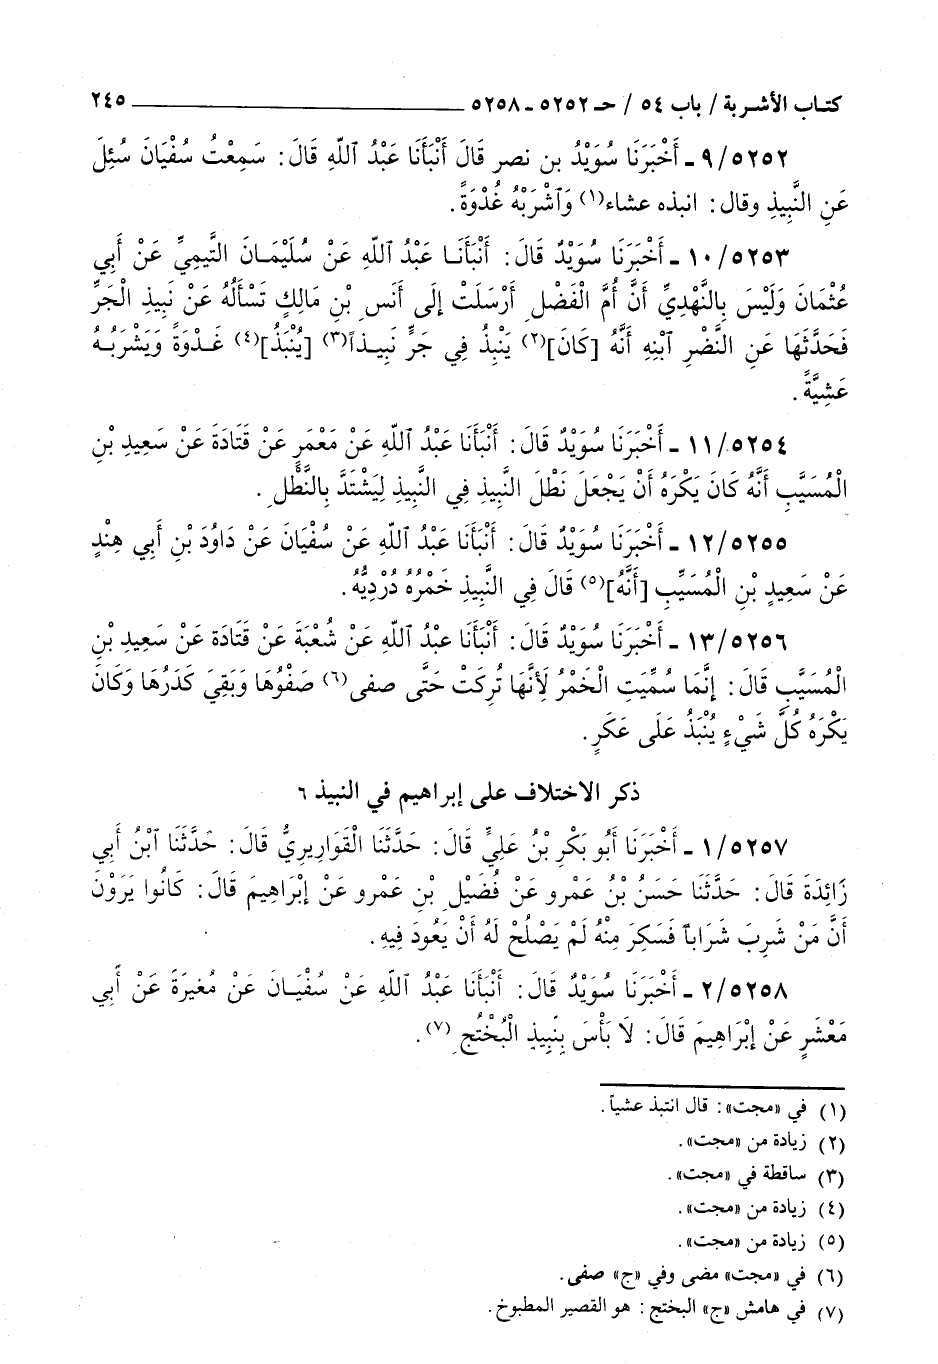 كتاب الأشربة / باب ٥٤ / حـ ٥٢٥٢ ـ ٥٢٥٨ ٢٤٥
٩/٥٢٥٢ ـ أَخْبَرَنَا سُوَيْدُ بن نصر قَالَ أَنْبَأَنَا عَبْدُ ٱللّهِ قَالَ: سَمِعْتُ سُفْيَانَ سُئِلَ
عَنِ النَّبِيذِ وقال: انبذه عشاء(١) وَٱشْرَبْهُ غُدْوَةً.
١٠/٥٢٥٣ ـ أَخْبَرَنَا سُوَيْدٌ قَالَ: أَنْبَأَنَا عَبْدُ ٱللّهِ عَنْ سُلَيْمَانَ التَّيْمِيِّ عَنْ أَبِي
عُثْمَانَ وَلَيْسَ بِالنَّهْدِيِّ أَنَّ أُمَّ الْفَضْلِ أَرْسَلَتْ إِلَى أَنَسِ بْنِ مَالِكٍ تَسْأَلُهُ عَنْ نَبِيذِ الْجَرِّ
فَحَدَّثَهَا عَنِ النَّضْرِ ٱبْنِهِ أَنَّهُ [كَانَ](٢) يَنْبِذُ فِي جَرٍّ نَبِيذاً(٣) [يُنْبَذُ](٤) غَدْوَةً وَيَشْرَبُهُ
عَشِيَّةً.
١١/٥٢٥٤ ـ أَخْبَرَنَا سُوَيْدٌ قَالَ: أَنْبَأَنَا عَبْدُ ٱللّهِ عَنْ مَعْمَرٍ عَنْ قَتَادَةَ عَنْ سَعِيدِ بْنِ
الْمُسَيَّبِ أَنَّهُ كَانَ يَكْرَهُ أَنْ يَجْعَلَ نَطْلَ النَّبِيذِ فِي النَّبِيذِ لِيَشْتَدَّ بِالنَّطْلِ.
١٢/٥٢٥٥ ـ أَخْبَرَنَا سُوَيْدٌ قَالَ: أَنْبَأَنَا عَبْدُ ٱللّهِ عَنْ سُفْيَانَ عَنْ دَاوُدَ بْنِ أَبِي هِنْدٍ
عَنْ سَعِيدِ بْنِ الْمُسَيِّبِ [أَنَّهُ](٥) قَالَ فِي النَّبِيذِ خَمْرُهُ دُرْدِيُّهُ.
١٣/٥٢٥٦ ـ أَخْبَرَنَا سُوَيْدٌ قَالَ: أَنْبَأَنَا عَبْدُ ٱللّهِ عَنْ شُعْبَةَ عَنْ قَتَادَةَ عَنْ سَعِيدِ بْنِ
الْمُسَيَّبِ قَالَ: إِنَّمَا سُمِّيَتِ الْخَمْرُ لِأَنَّهَا تُرِكَتْ حَتَّى صفى(٦) صَفْوُهَا وَبَقِيَ كَدَرُهَا وَكَانَ
يَكْرَهُ كُلَّ شَيْءٍ يُنْبَذُ عَلَى عَكَرٍ.
ذكر الاختلاف على إبراهيم في النبيذ ٦
١/٥٢٥٧ ـ أَخْبَرَنَا أَبُو بَكْرِ بْنُ عَلِيٍّ قَالَ: حَدَّثَنَا الْقَوَارِيرِيُّ قَالَ: حَدَّثَنَا ٱبْنُ أَبِي
زَائِدَةَ قَالَ: حَدَّثَنَا حَسَنُ بْنُ عَمْرٍو عَنْ فُضَيْلِ بْنِ عَمْرٍو عَنْ إِبْرَاهِيمَ قَالَ: كَانُوا يَرَوْنَ
أَنَّ مَنْ شَرِبَ شَرَاباً فَسَكِرَ مِنْهُ لَمْ يَصْلُحْ لَهُ أَنْ يَعُودَ فِيهِ.
٢/٥٢٥٨ ـ أَخْبَرَنَا سُوَيْدٌ قَالَ: أَنْبَأَنَا عَبْدُ ٱللّهِ عَنْ سُفْيَانَ عَنْ مُغِيرَةَ عَنْ أَبِي
مَعْشَرٍ عَنْ إِبْرَاهِيمَ قَالَ: لاَ بَأْسَ بِنَبِيذِ الْبُخْتُجِ(٧).
(١) في «مجت»: قال انتبذ عشياً.
(٢) زيادة من «مجت».
(٣) ساقطة في «مجت».
(٤) زيادة من «مجت».
(٥) زيادة من «مجت».
(٦) في «مجت» مضى وفي «ج» صفى.
(٧) في هامش «ج» البختج: هو القصير المطبوخ.